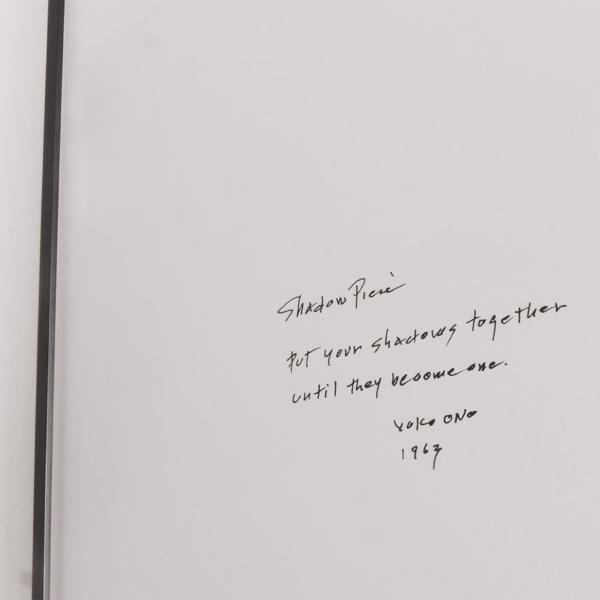 Shadow Piece
Put your shadows together
until they become one.
Yoko Ono
1963